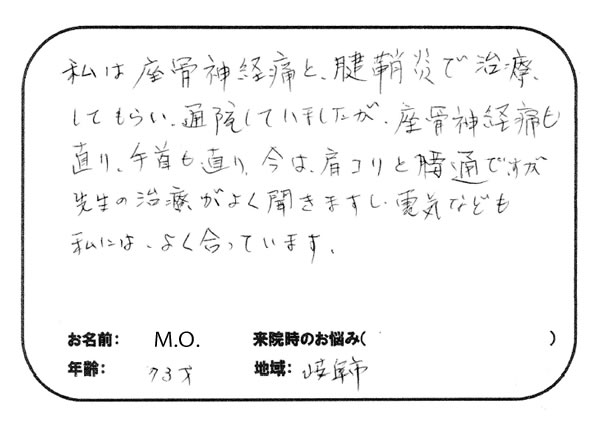 私は座骨神経痛と、腱鞘炎で治療、
してもらい、通院していましたが、座骨神経痛も
直り、手首も直り、今は、肩コリと腰通ですが
先生の治療がよく聞きますし、電気なども
私には、よく合っています。
お名前: M.O. 来院時のお悩み( )
年齢: 73才 地域: 岐阜市